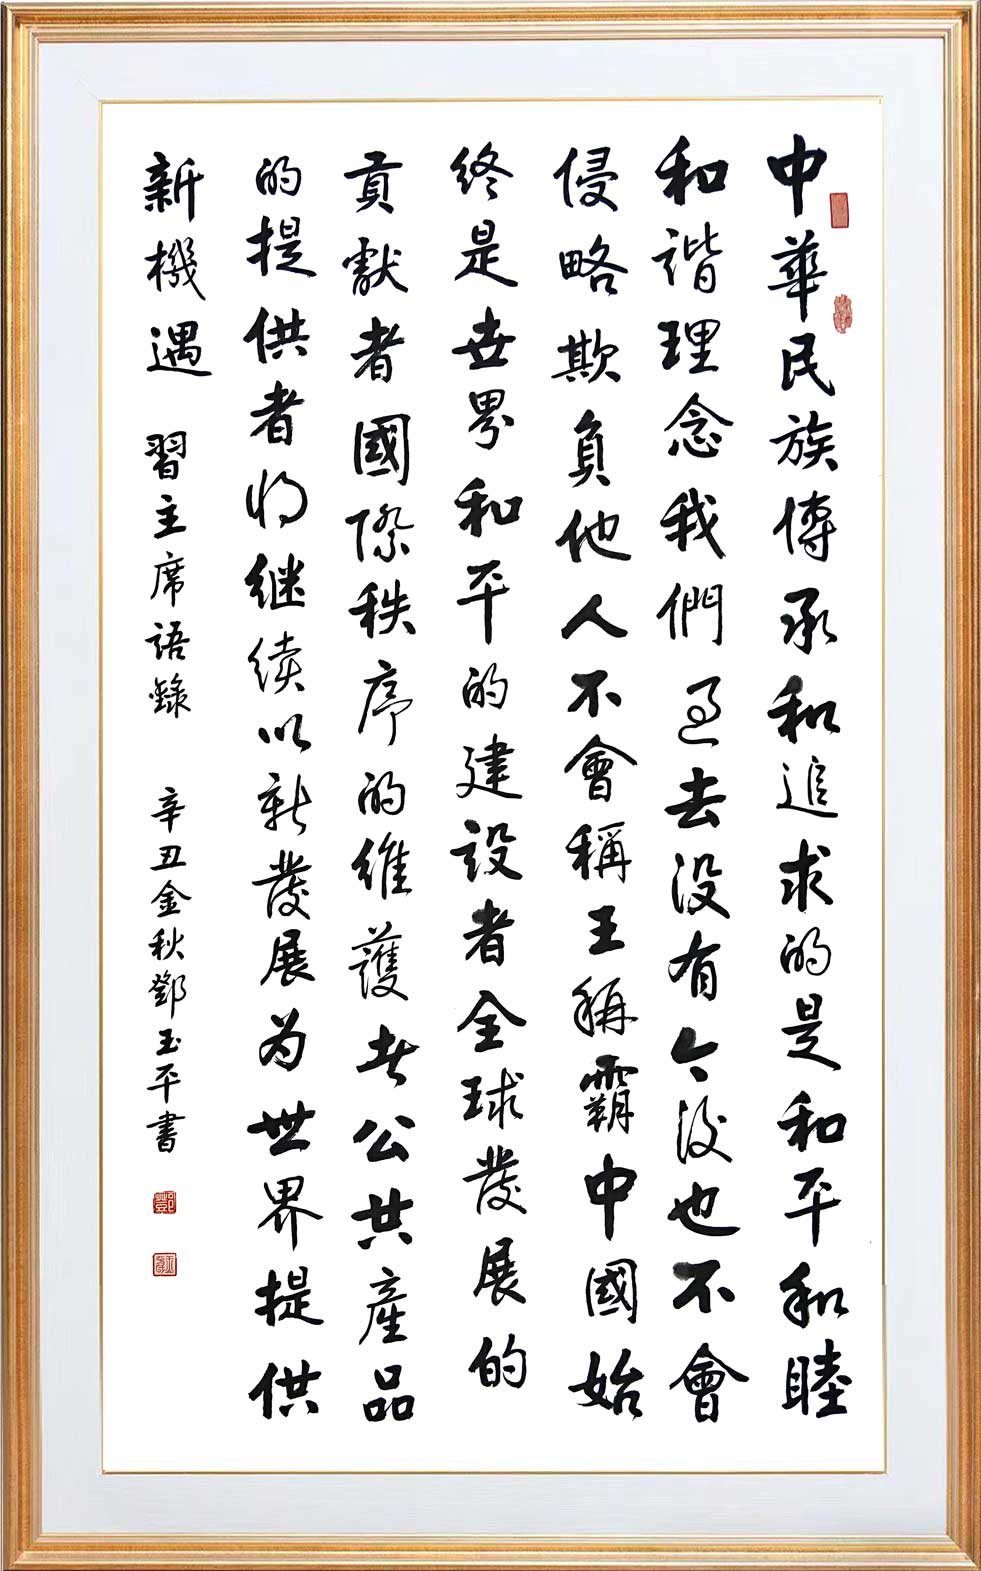 中華民族傳承和追求的是和平和睦
和谐理念我們過去没有今後也不會
侵略欺負他人不會稱王稱霸中國始
終是世界和平的建設者全球發展的
貢獻者國際秩序的維護者公共產品
的提供者将继续以新發展为世界提供
新機遇 習主席語錄 辛丑金秋鄧玉平書